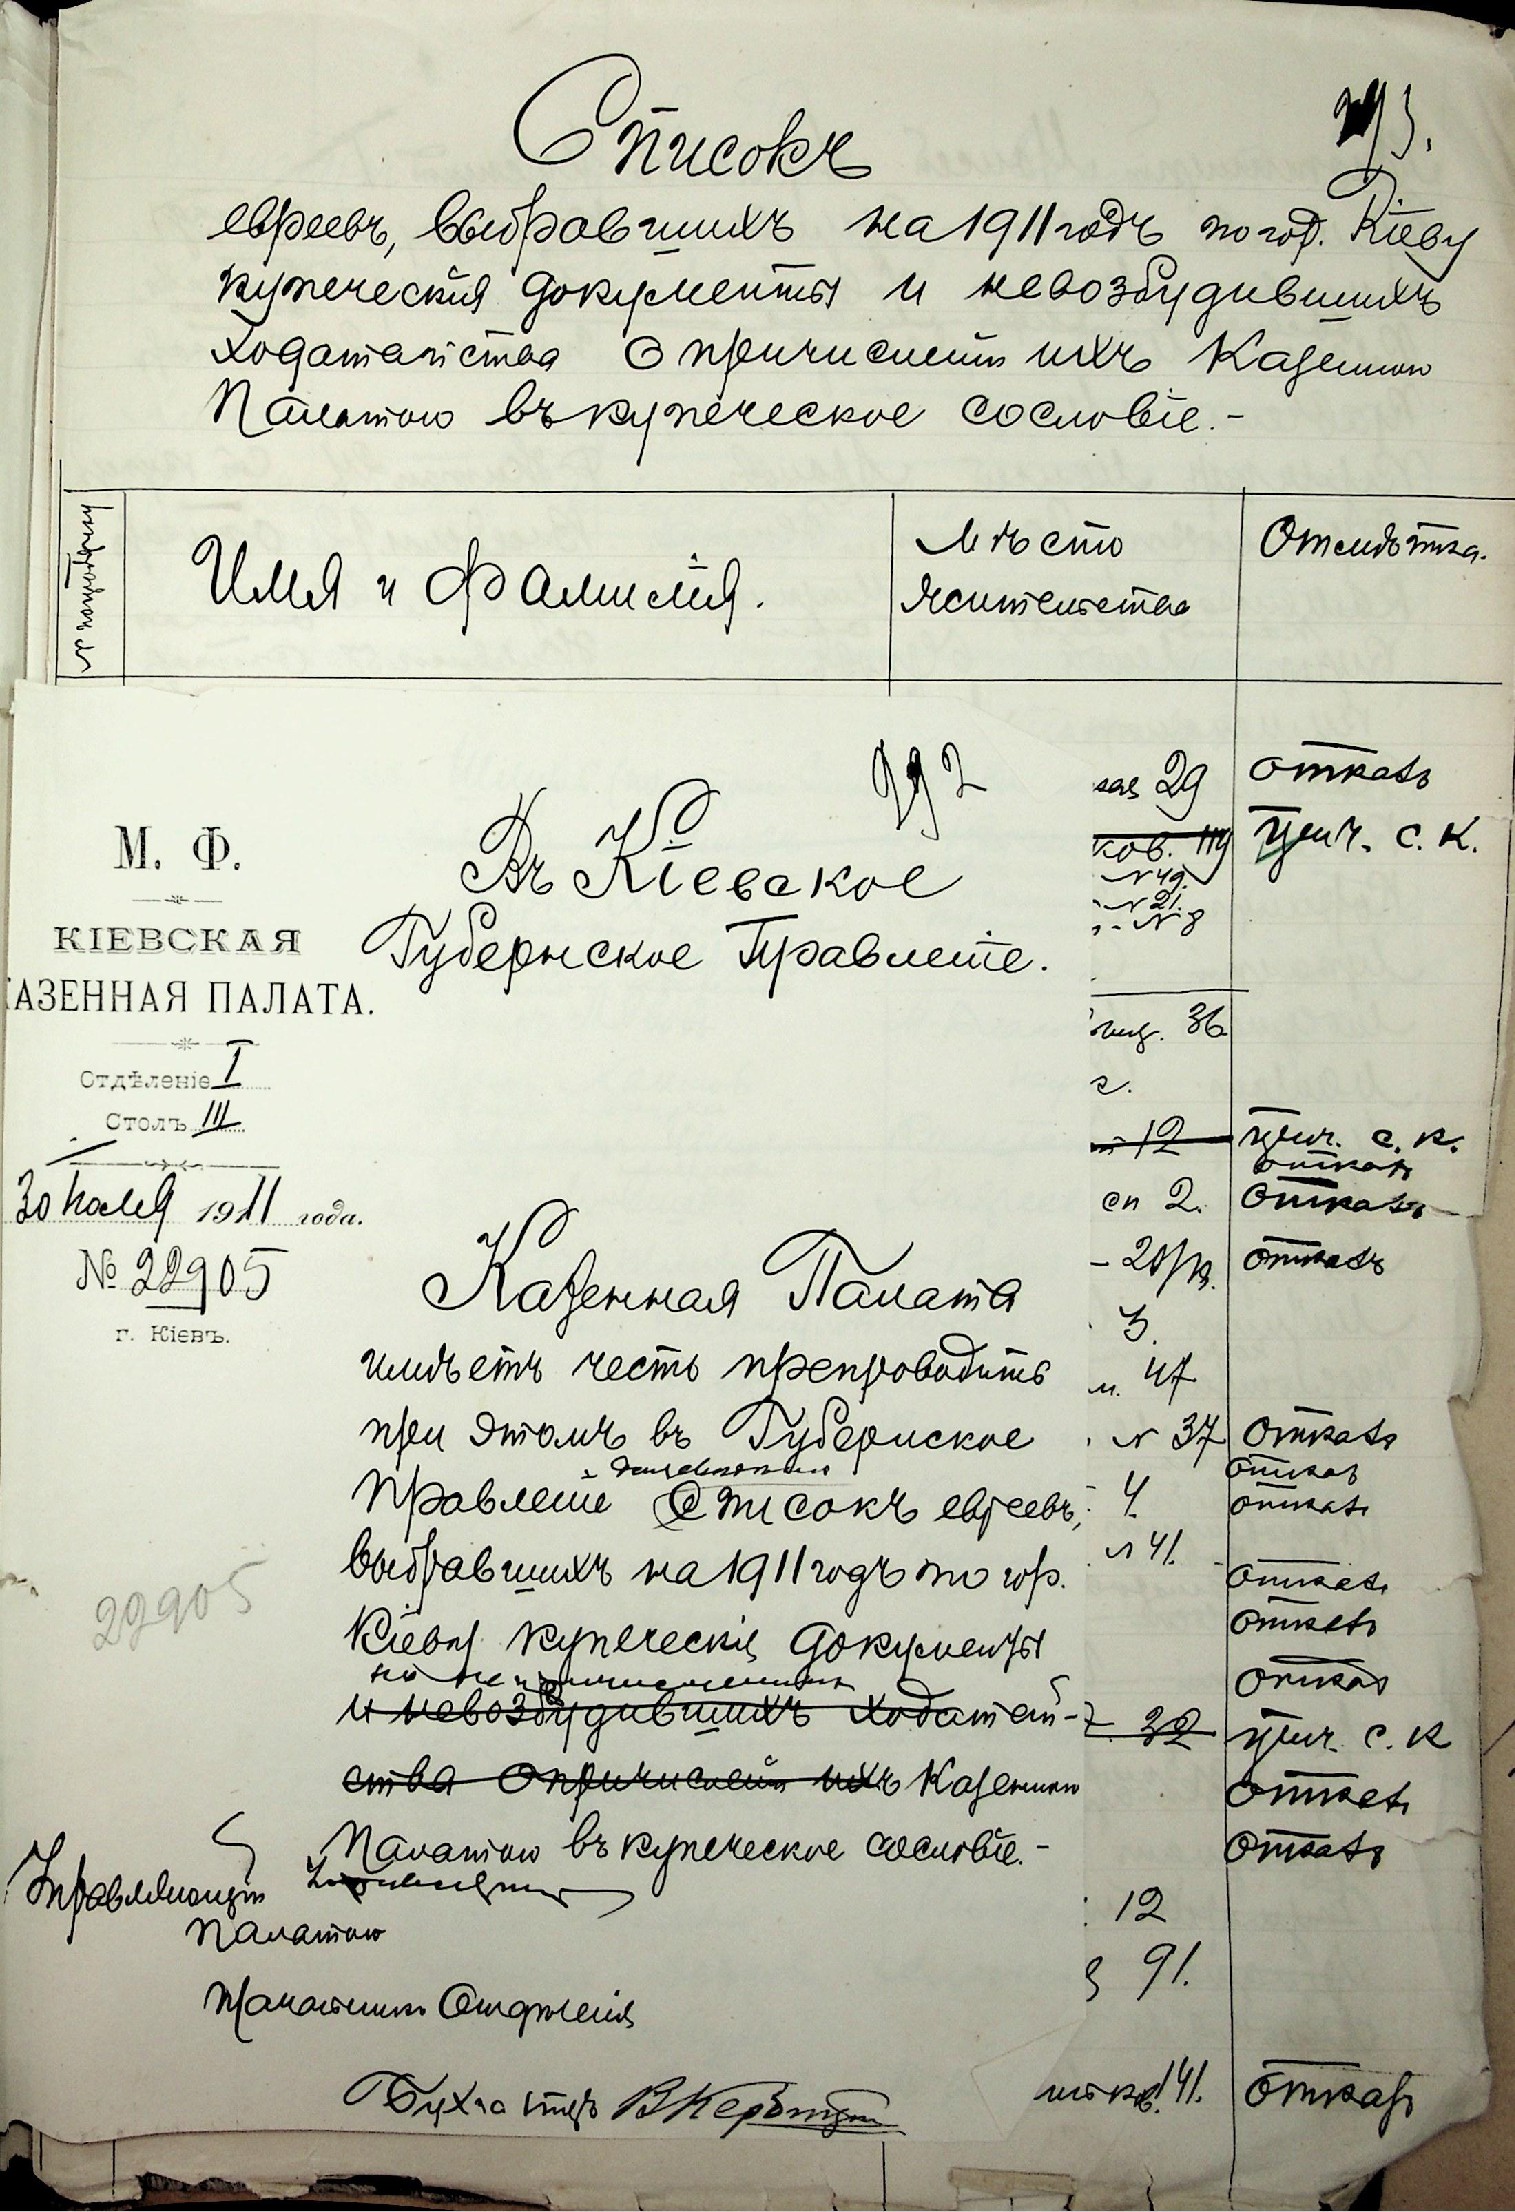 293.
Списокъ
евреевъ, выбравшихъ на 1911 годъ по гор. Кіеву
купеческія документы и невозбудившихъ
ходатайства о причисленіи ихъ Казенною
Палатою въ купеческое сословіе.-
№ по порядку
Имя и Фамилія.
Мѣсто
жительства
Отмѣтка.
292
М. Ф.
КІЕВСКАЯ
КАЗЕННАЯ ПАЛАТА.
Отдѣленіе I
Столъ III
30 Іюля 1911 года.
№ 22905
г. Кіевъ.
22905
Въ Кіевское
Губернское Правленіе.
Казенная Палата
имѣетъ честь препроводить
при этомъ въ Губернское
Правленіе Списокъ евреевъ,
выбравшихъ на 1911 годъ по гор.
Кіеву купеческія документы
но не причисленныхъ
и невозбудившихъ ходатай-
ства о причисленіи ихъ Казенною
Палатою въ купеческое сословіе.-
Управляющій
Палатою
Начальникъ Отдѣленія
Бухгалтеръ
29 отказъ
ков. 114 прич. С. К.
№ 49.
№ 21.
№ 8
36
12 прич. С. К.
отказъ
2. отказъ
20 отказъ
3.
47
№ 37 отказъ
отказъ
4 отказъ
№ 41.
отказъ
отказъ
отказъ
32 прич. С. К
отказъ
отказъ
12
91.
141. отказъ